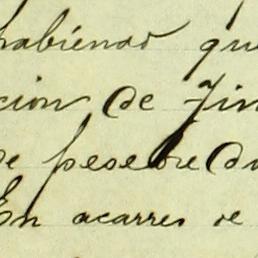 habiendo que
cion de Fin
de pesebre du
En acarreo de